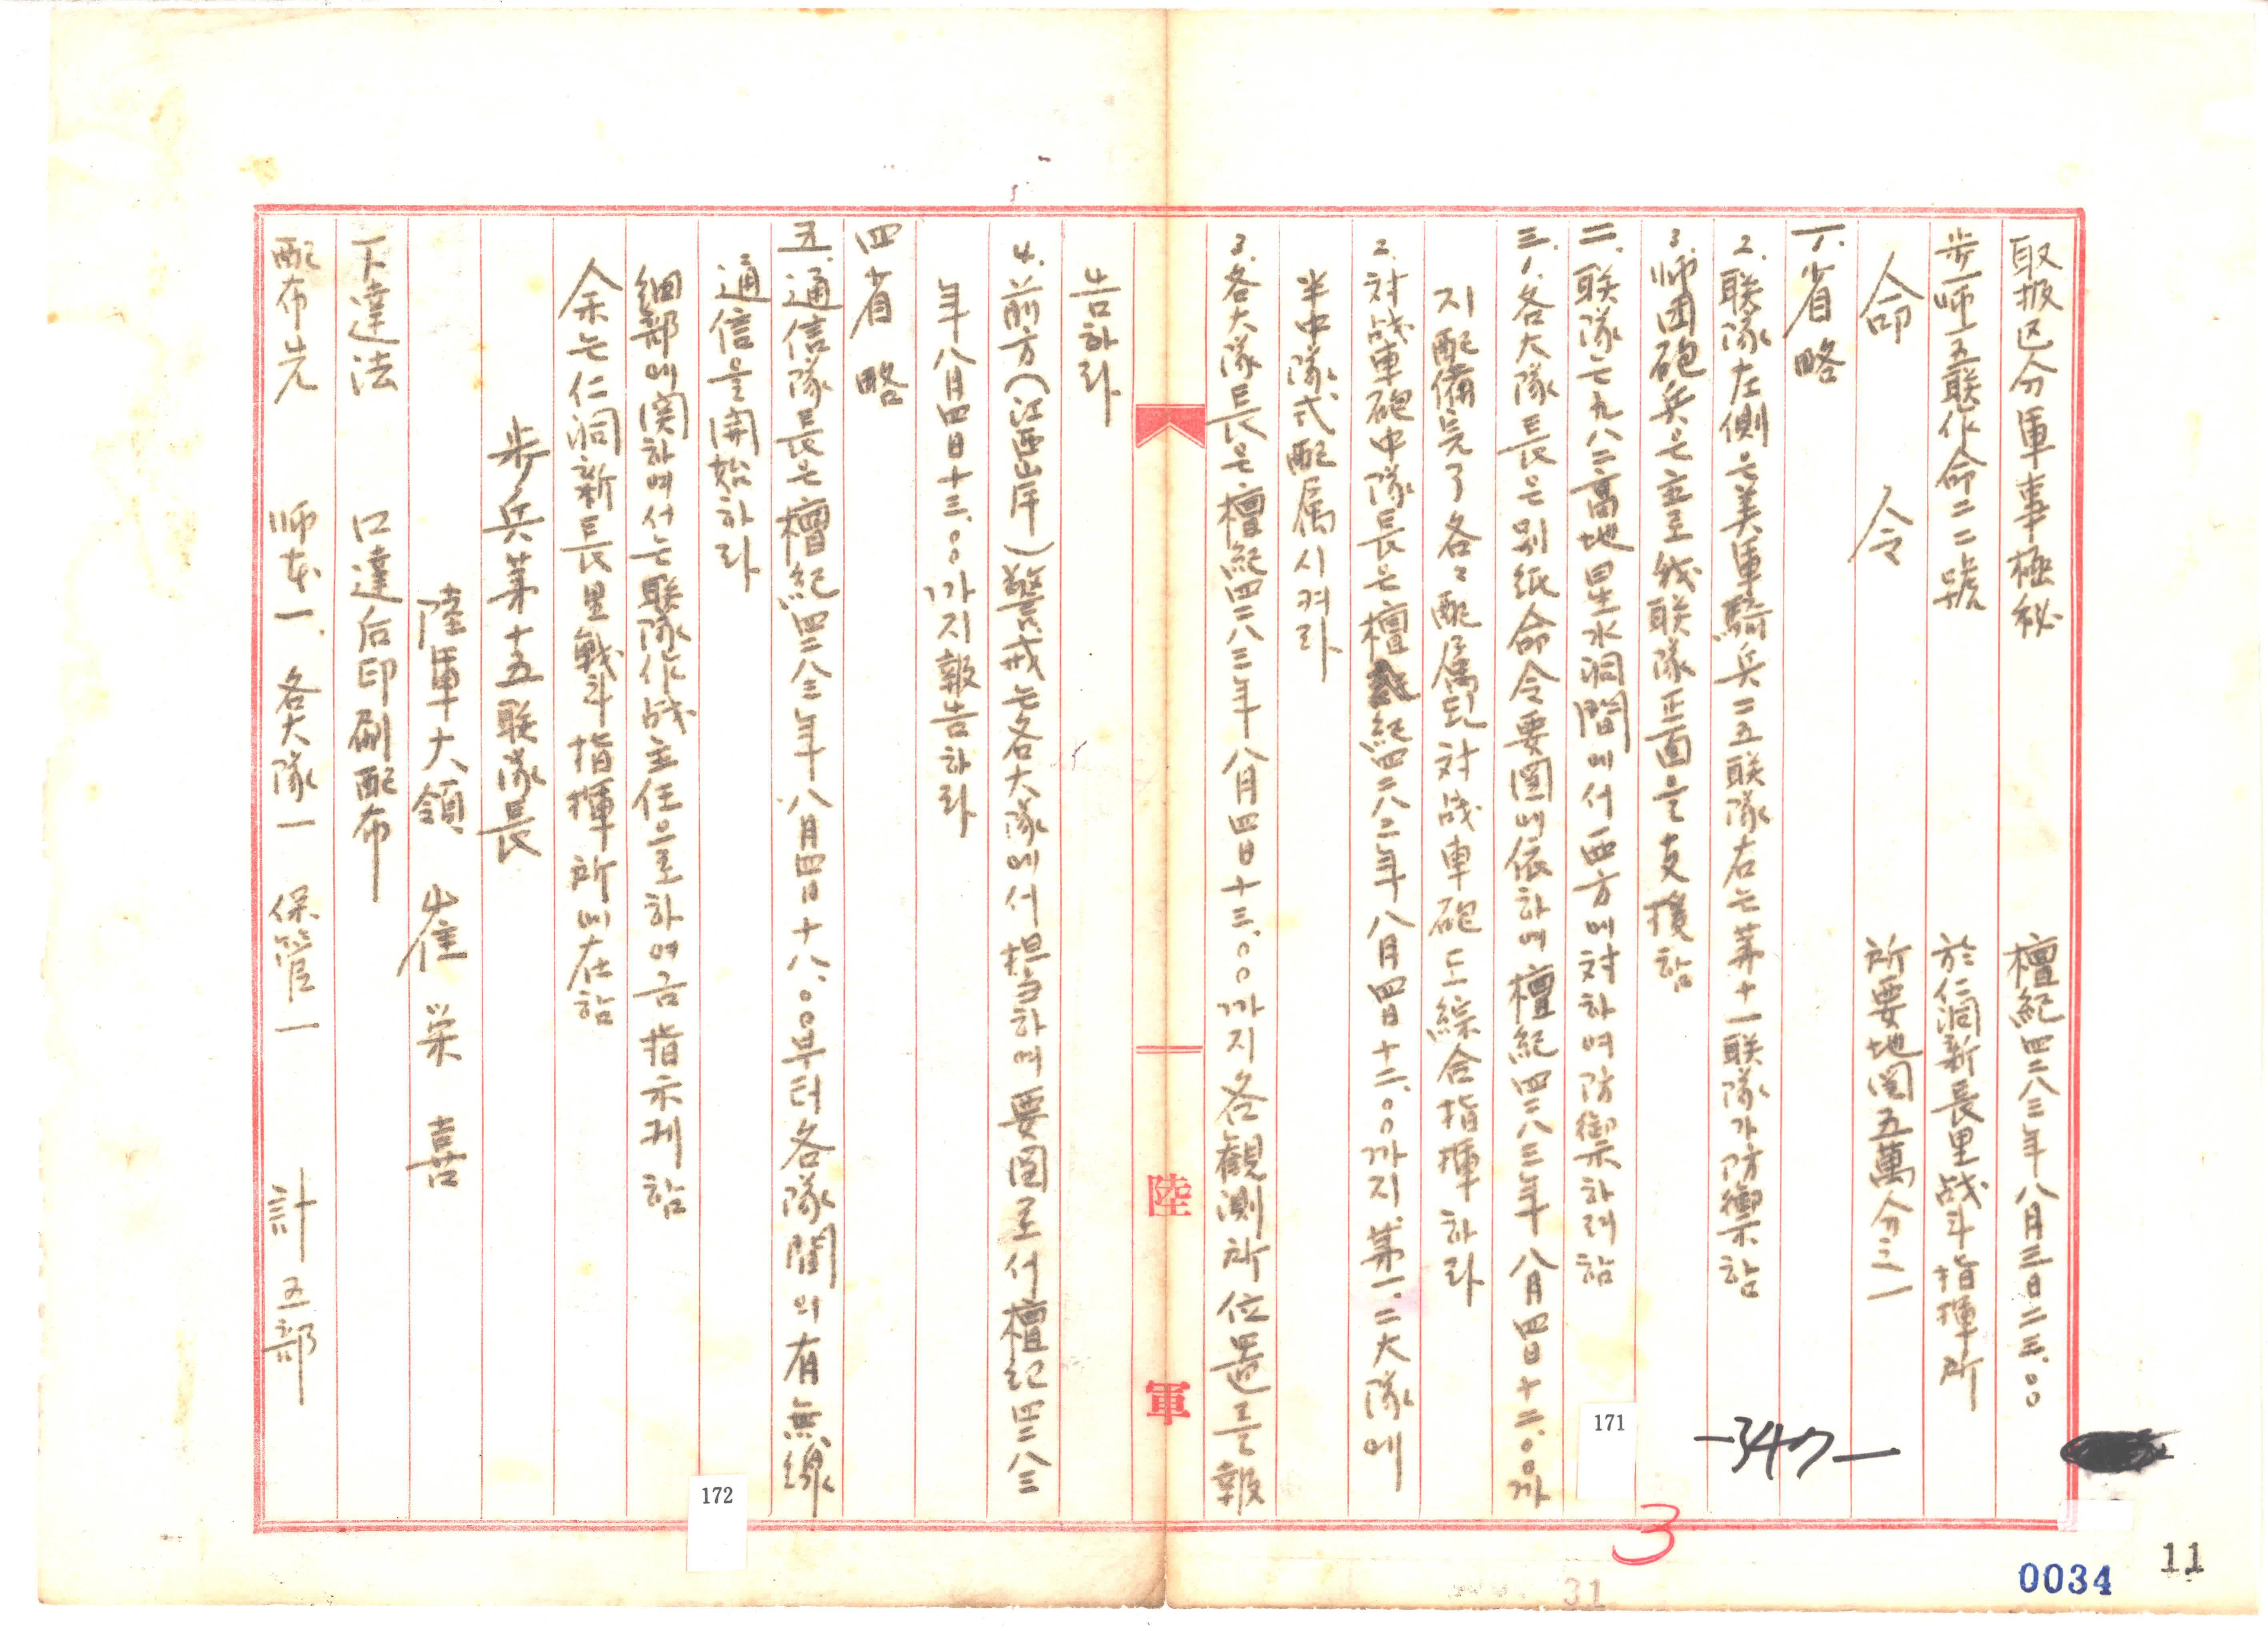 取扱区分軍事極秘 檀紀四二八三年八月三日二三.○○
步一师一五联作命二二號 於仁洞新長里战斗指揮所
命 令 所要地図五萬分之一
一.省略
2.联隊左側은美軍騎兵二五联隊右는苐十一联隊가防禦함
3.师団砲兵은主로我联隊正面을支援함
二.联隊는九八二高地星水洞間에서西方에対하여防禦하려함
三.1.各大隊長은别紙命令要図에依하여檀紀四二八三年八月四日十二.○○까
지配備完了各々配属된対战車砲도綜合指揮하라
2.対战車砲中隊長은檀紀四二八三年八月四日十二.○○까지第一.二大隊에
半中隊式配属시켜라
3.各大隊長은檀紀四二八三年八月四日十三.○○까지各観測所位置를報
告하라
陸 軍
4.前方(江西岸)警戒는各大隊에서担当하여要図로서檀紀四二八三
年八月四日十三.○○까지報告하라
四省略
五.通信隊長은檀紀四二八三年八月四日十八.○○부터各隊間의有無線
通信을開始하라
細部에関하여서는联隊作战主任으로하여금指示케함
余는仁洞新長里戰斗指揮所에在함
步兵苐十五联隊長
陸軍大領 崔 栄 喜
下達法 口達后印刷配布
配布先 师本一. 各大隊一 保管一 計五部
171
172
-347-
3
31
0034
11